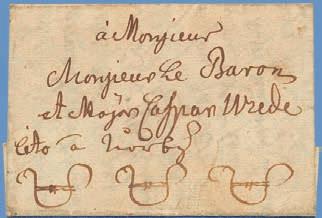 à Monsieur
Monsieur Le Baron
et Major Caspar Wrede
cito à Norby